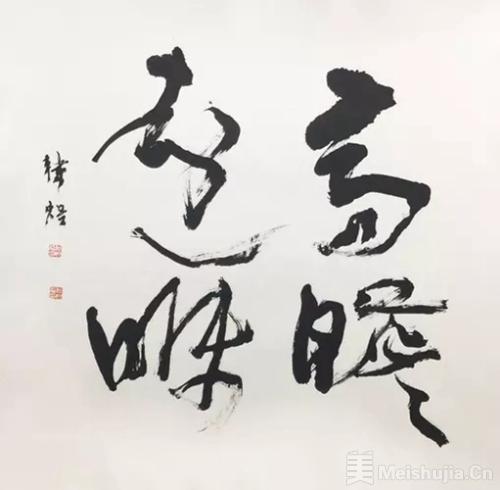 高瞻
遠矚
美 Meishujia.Cn